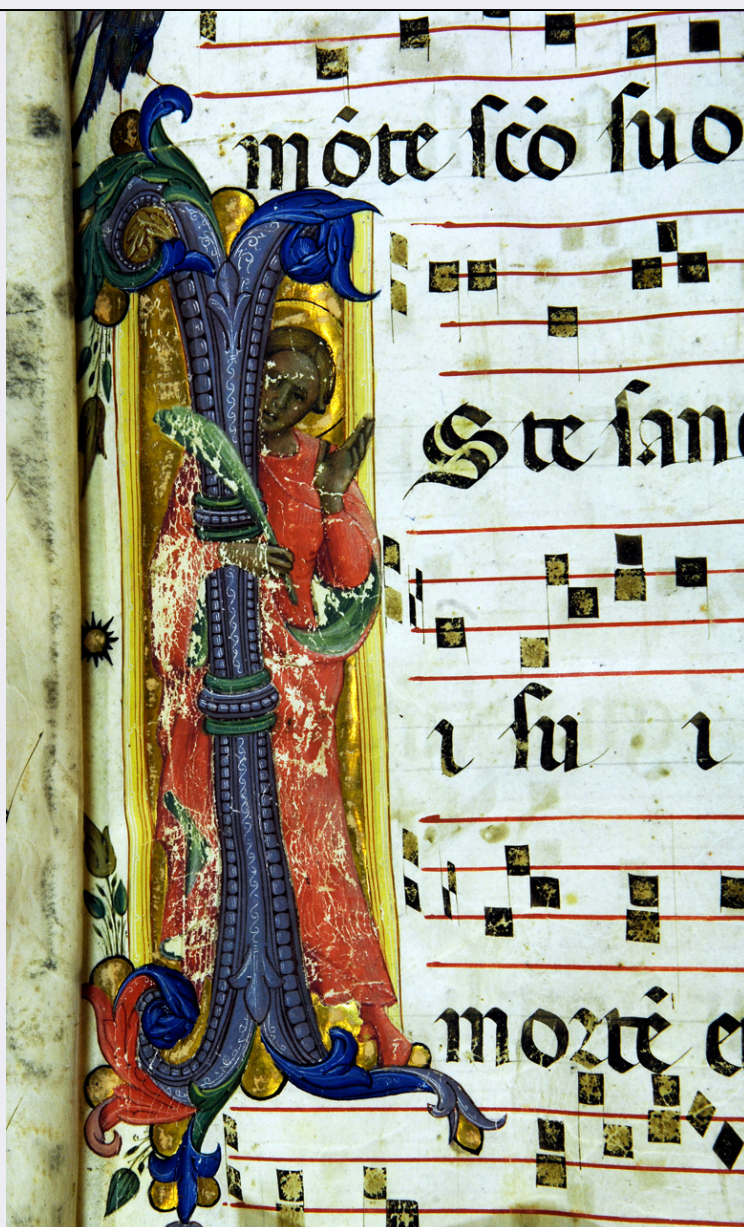 mōte scō suo
ISte sanc
i su i
mortē e